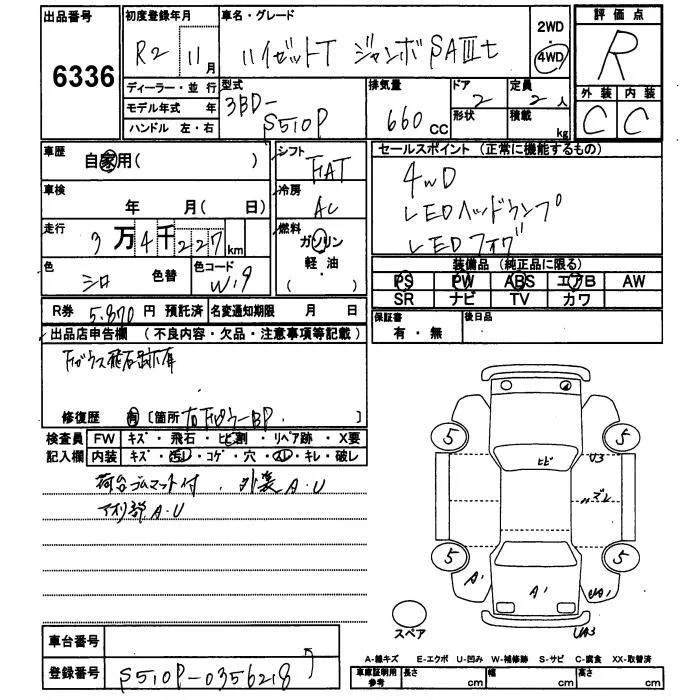 出品番号
6336
初度登録年月
R2 11月
車名・グレード
ハイゼットT ジャンボSAⅢt
2WD
・
4WD
評価点
R
外装 内装
C C
ディーラー・並行
モデル年式 年
ハンドル 左・右
型式
3BD-
S510P
排気量
660 CC
ドア
2
形状
定員
2人
積載
kg
車歴
自家用( )
車検
年 月( 日)
走行
3万4千227km
色
シロ 色替
色コード
W19
シフト
FAT
冷房
AC
燃料
ガソリン
軽・油
セールスポイント (正常に機能するもの)
4WD
LEDヘッドランプ
LEDフォグ
装備品 (純正品に限る)
PS PW ABS エアB AW
SR ナビ TV カワ
R券 5,870 円 預託済
名変通知期限 月 日
保証書
有・無
後日品
出品店申告欄 (不良内容・欠品・注意事項等記載)
Fガラス飛石跡 有
修復歴 有 [箇所 右Fピラー・BP. ]
検査員
記入欄
FW キズ・飛石・ヒビ割・リペア跡・X要
内装 キズ・汚れ・コゲ・穴・スレ・キレ・破レ
荷台ゴムマット付 . 外装A.U
下廻り A.U
5 5
ヒビ
U3
ズレ
5 5
A1 A1 UA1
UA3
スペア
車台番号
登録番号
S510P-0356218
A-線キズ E-エクボ U-凹み W-補修跡 S-サビ C-腐食 XX-交換済
車庫証明用
参考
長さ cm
幅 cm
高さ cm